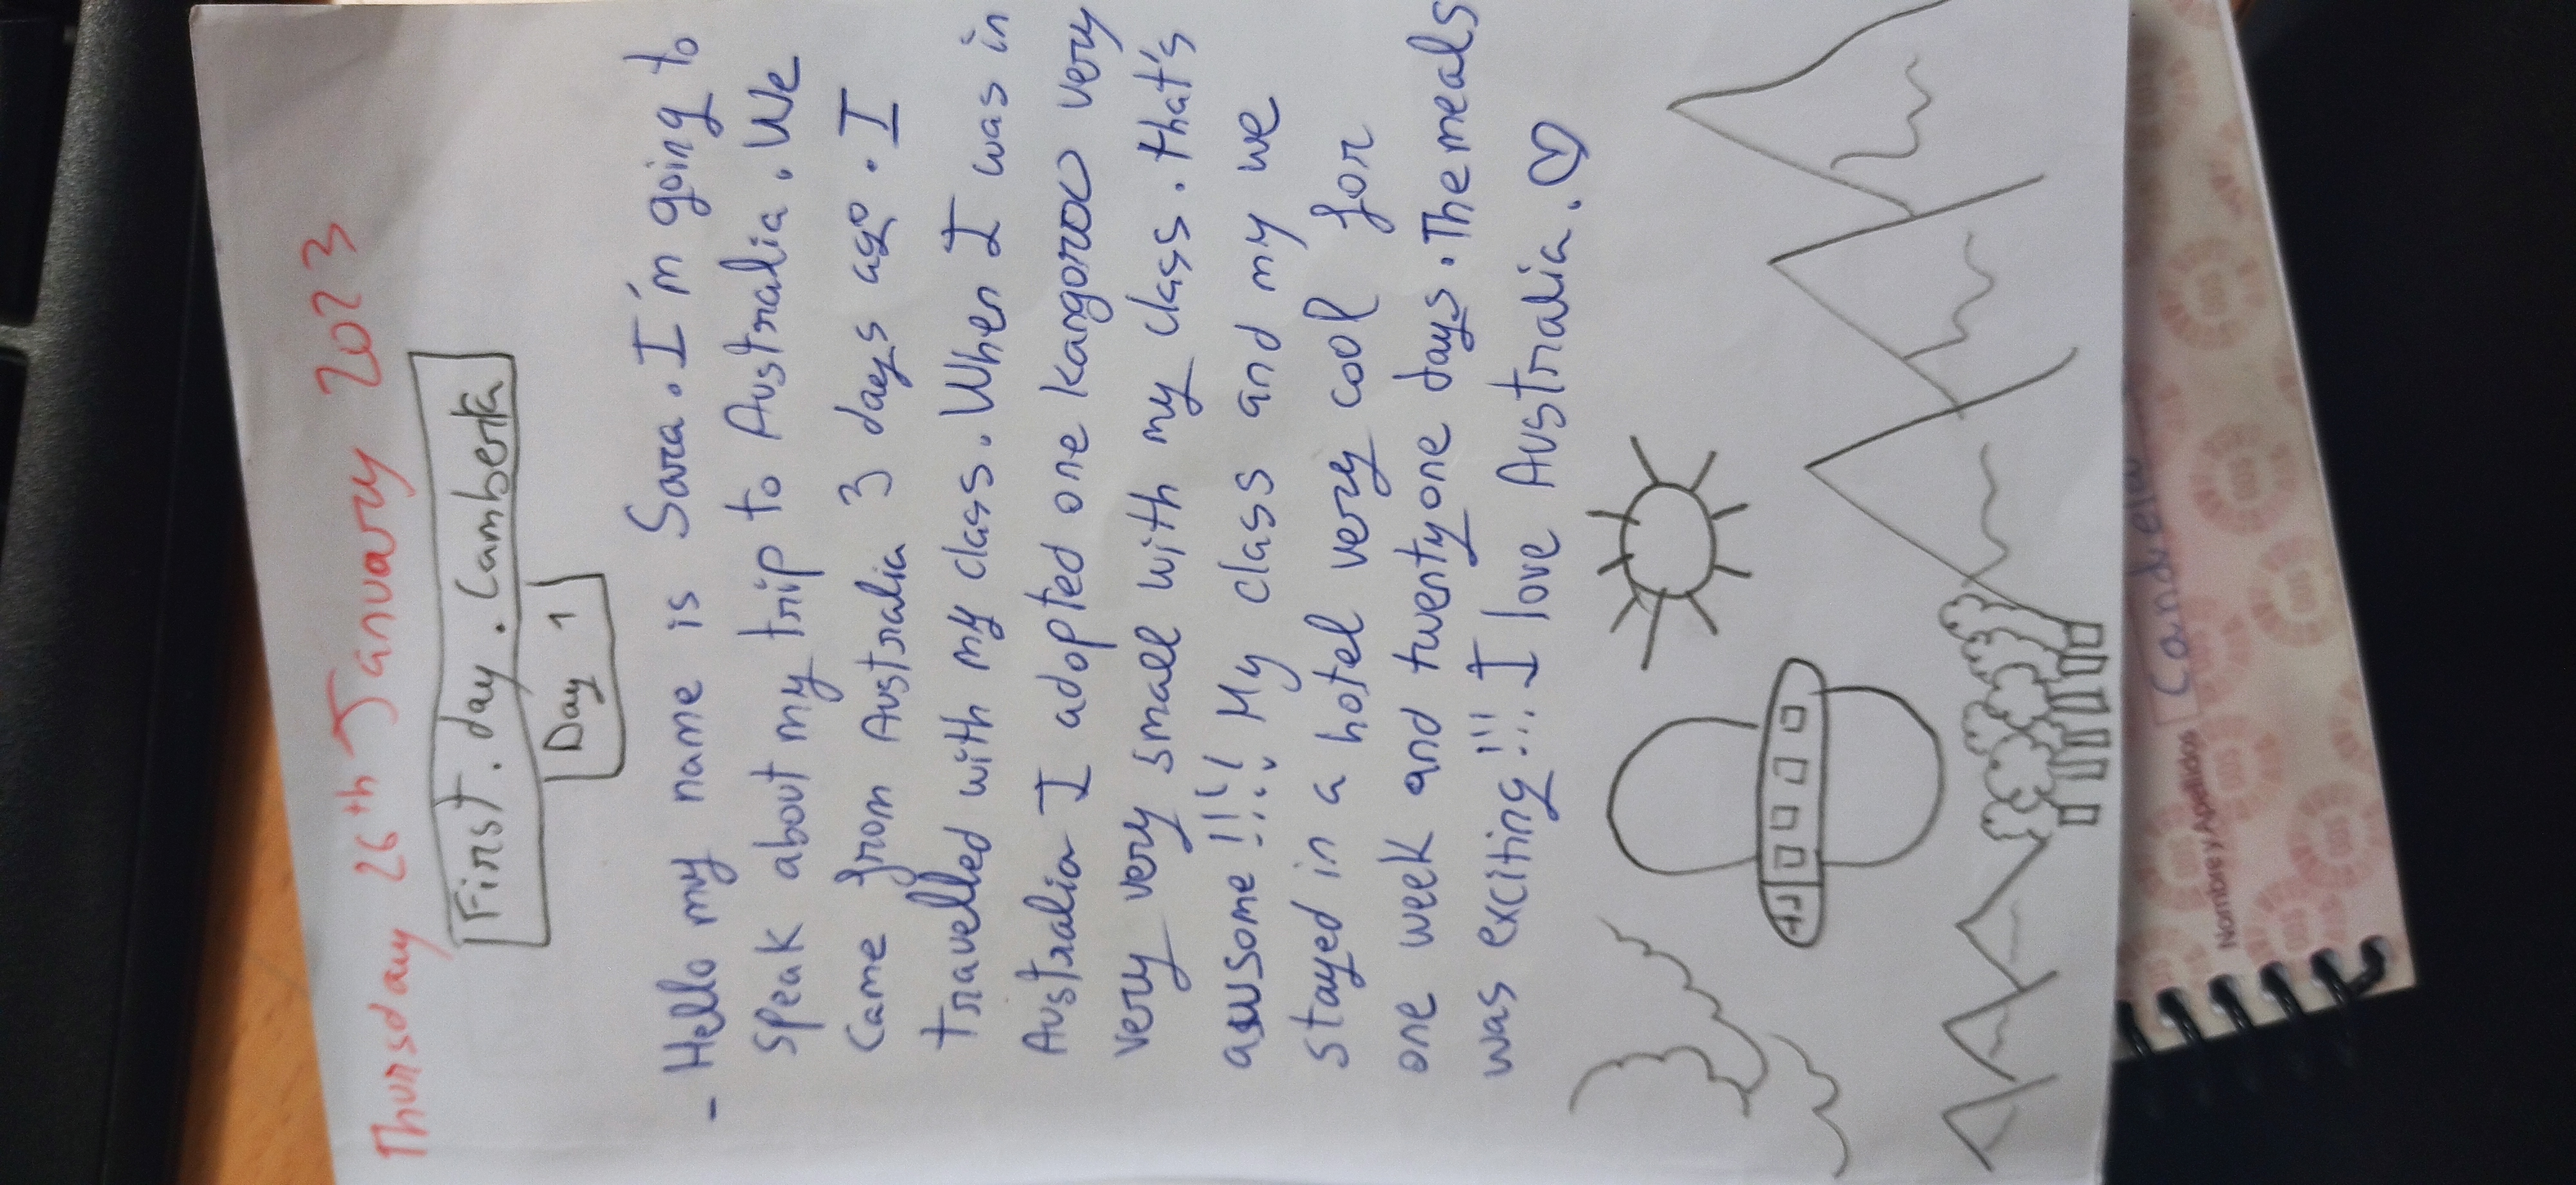 Thursday 26th January 2023
First. day. Camberra
Day 1
- Hello my name is Sara. I'm going to
speak about my trip to Australia. We
came from Australia 3 days ago. I
travelled with my class. When I was in
Australia I adopted one kangoroo very
very very small with my class. that's
awsome!!!! My class and my we
stayed in a hotel very cool for
one week and twenty one days. The meals
was exciting!!! I love Australia. ♡
Nombre y Apellidos Candela